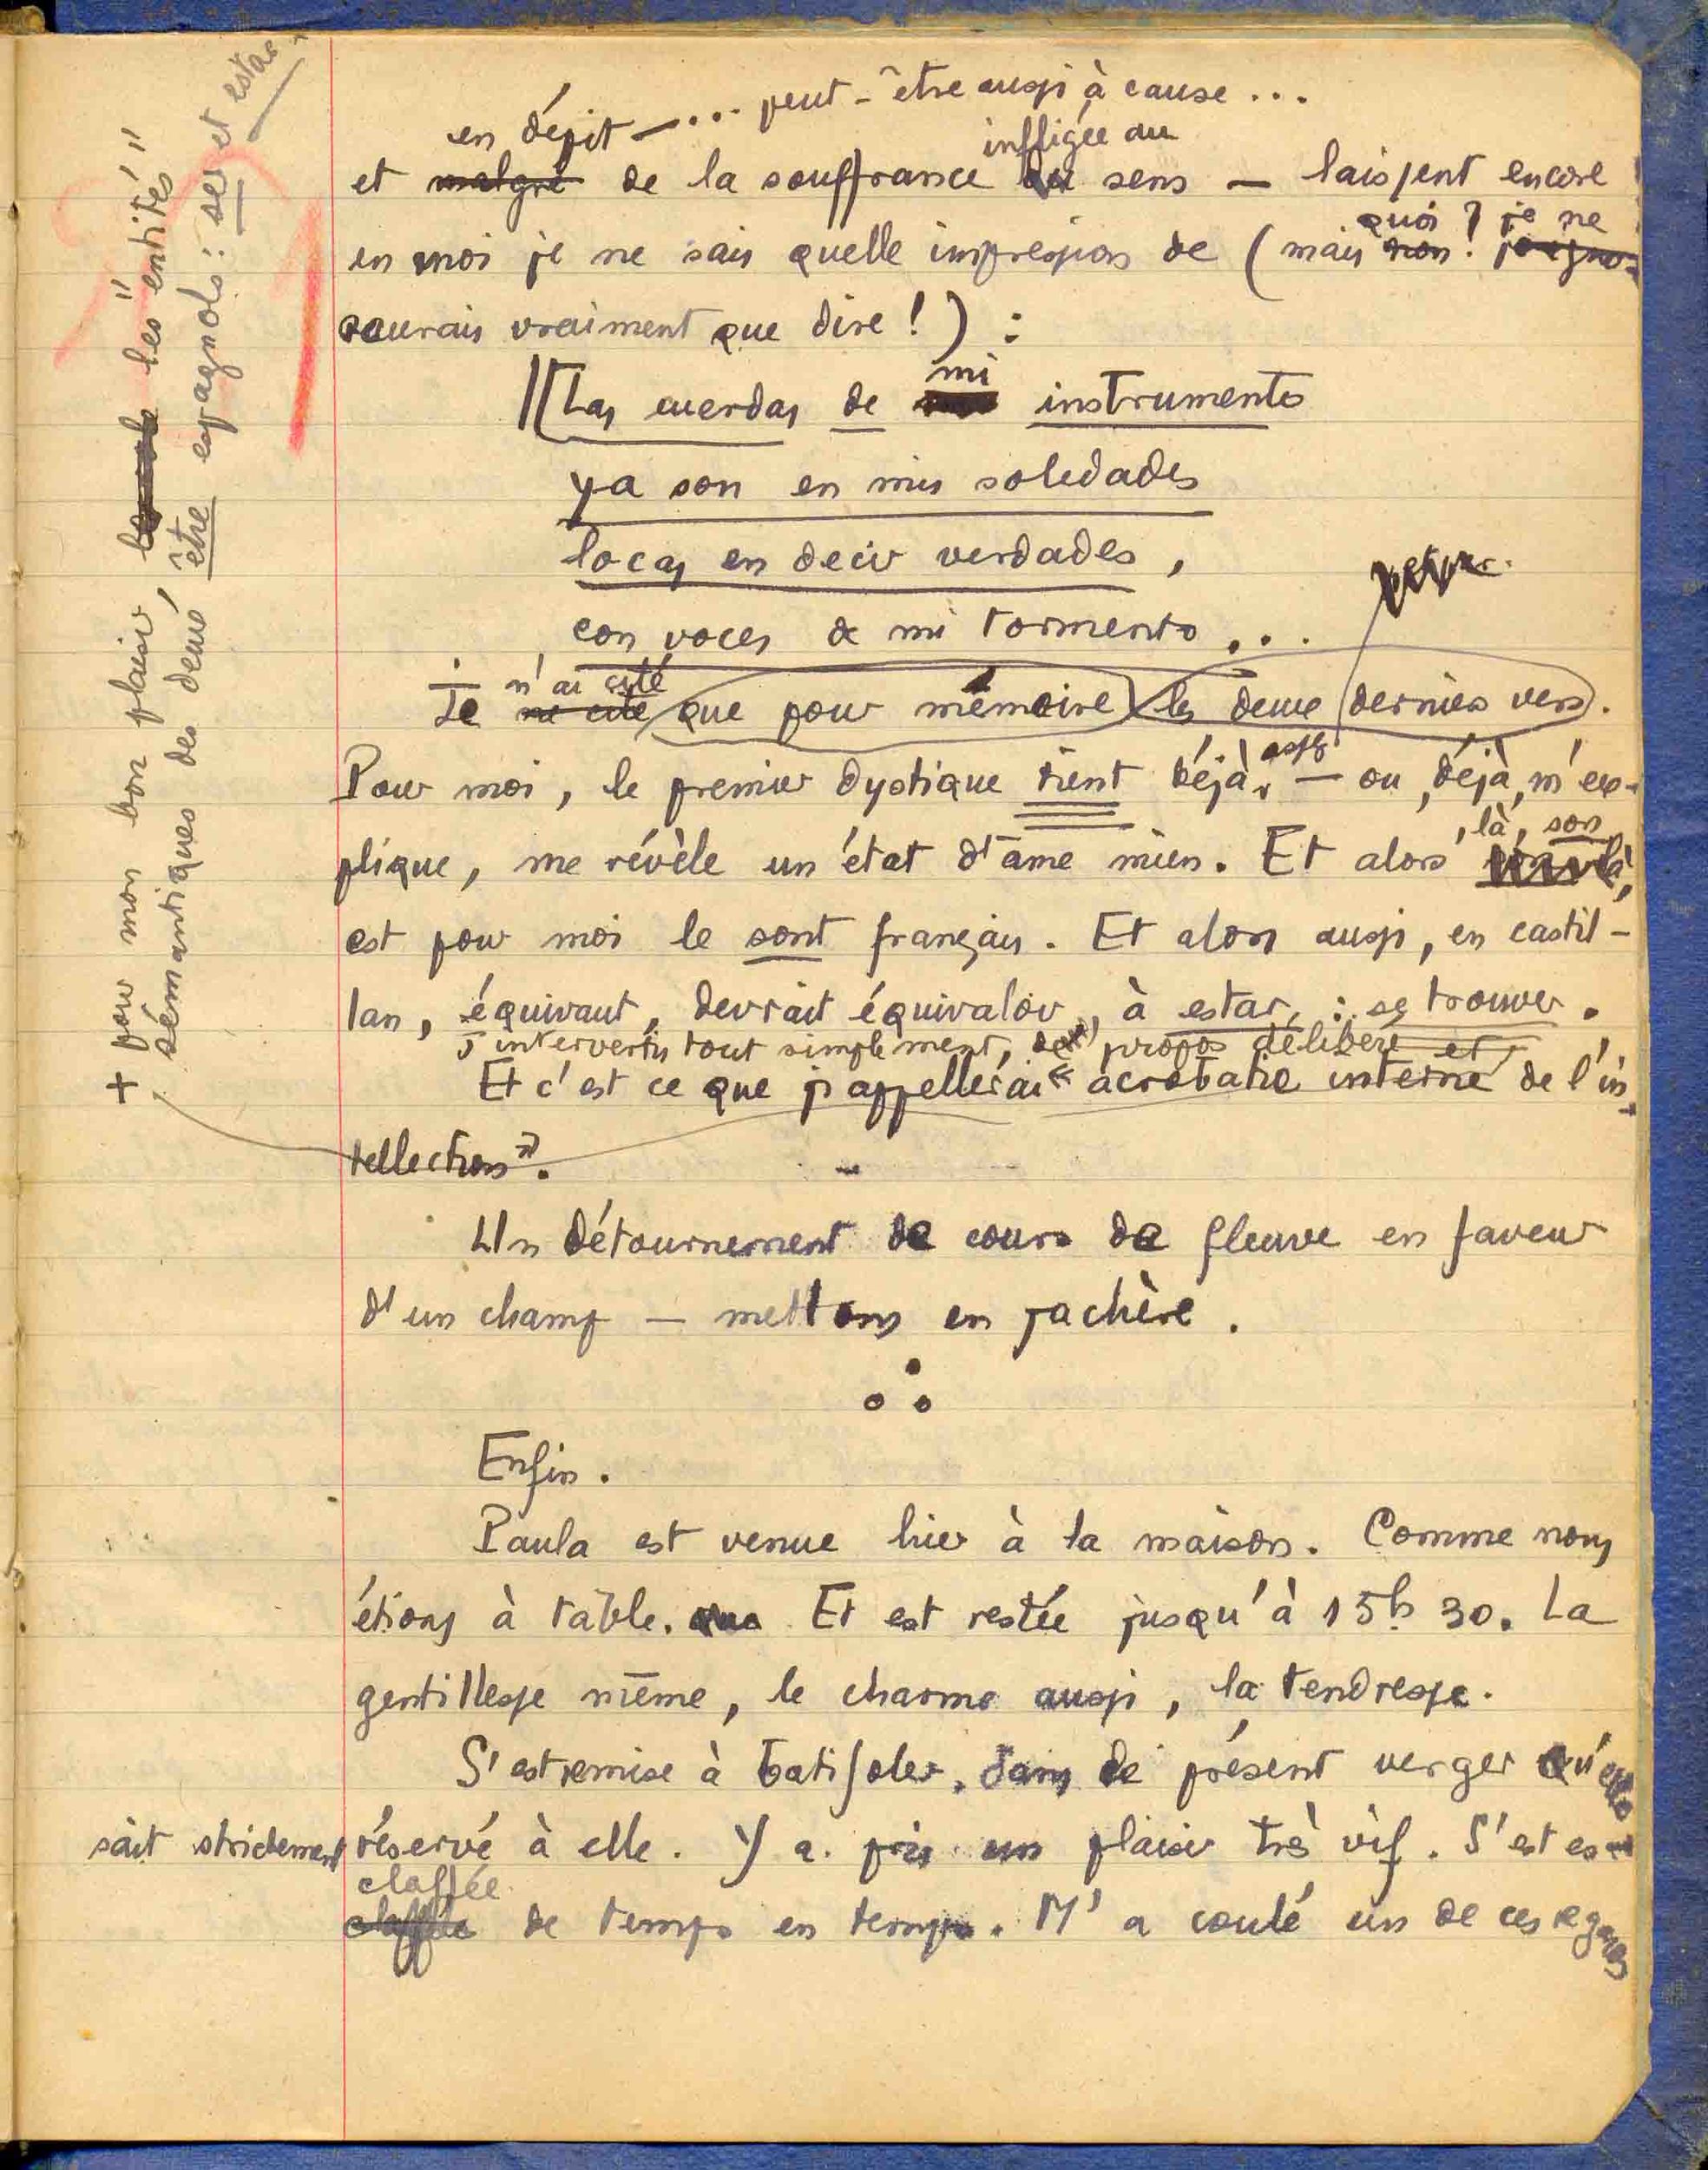 en dépit — ... peut-être aussi à cause ...
infligée au
et malgré de la souffrance du sens — laissent encore
quoi ? je ne
en moi je ne sais quelle impression de (mais non !
saurais vraiment que dire ! ) :
mi
Las cuerdas de instrumento
ya son en mis soledades
locas en decir verdades,
con voces de mi tormento ...
n'ai cité
Je ne cite que pour mémoire les deux derniers vers.
Pour moi, le premier dystique tient déjà, — ou, déjà, m'ex-
, là, son
plique, me révèle un état d'âme mien. Et alors
est pour moi le sont français. Et alors aussi, en castil-
lan, équivaut, devrait équivaloir, à estar, : se trouver.
J'intervertis tout simplement, de propos délibéré et +
Et c'est ce que j'appellerai « acrobatie interne de l'in-
tellection ».
Un détournement de cours de fleuve en faveur
d'un champ — mettons en jachère.
Enfin.
Paula est venue hier à la maison. Comme nous
étions à table. Et est restée jusqu'à 15h 30. La
gentillesse même, le charme aussi, la tendresse.
S'est remise à batifoler, dans ce présent verger qu'elle
sait strictement réservé à elle. Y a pris un plaisir très vif. S'est es-
claffée
de temps en temps. M'a coulé un de ces regards
+ pour mon bon plaisir, les "entités"
sémantiques des deux être espagnols : ser et estar.